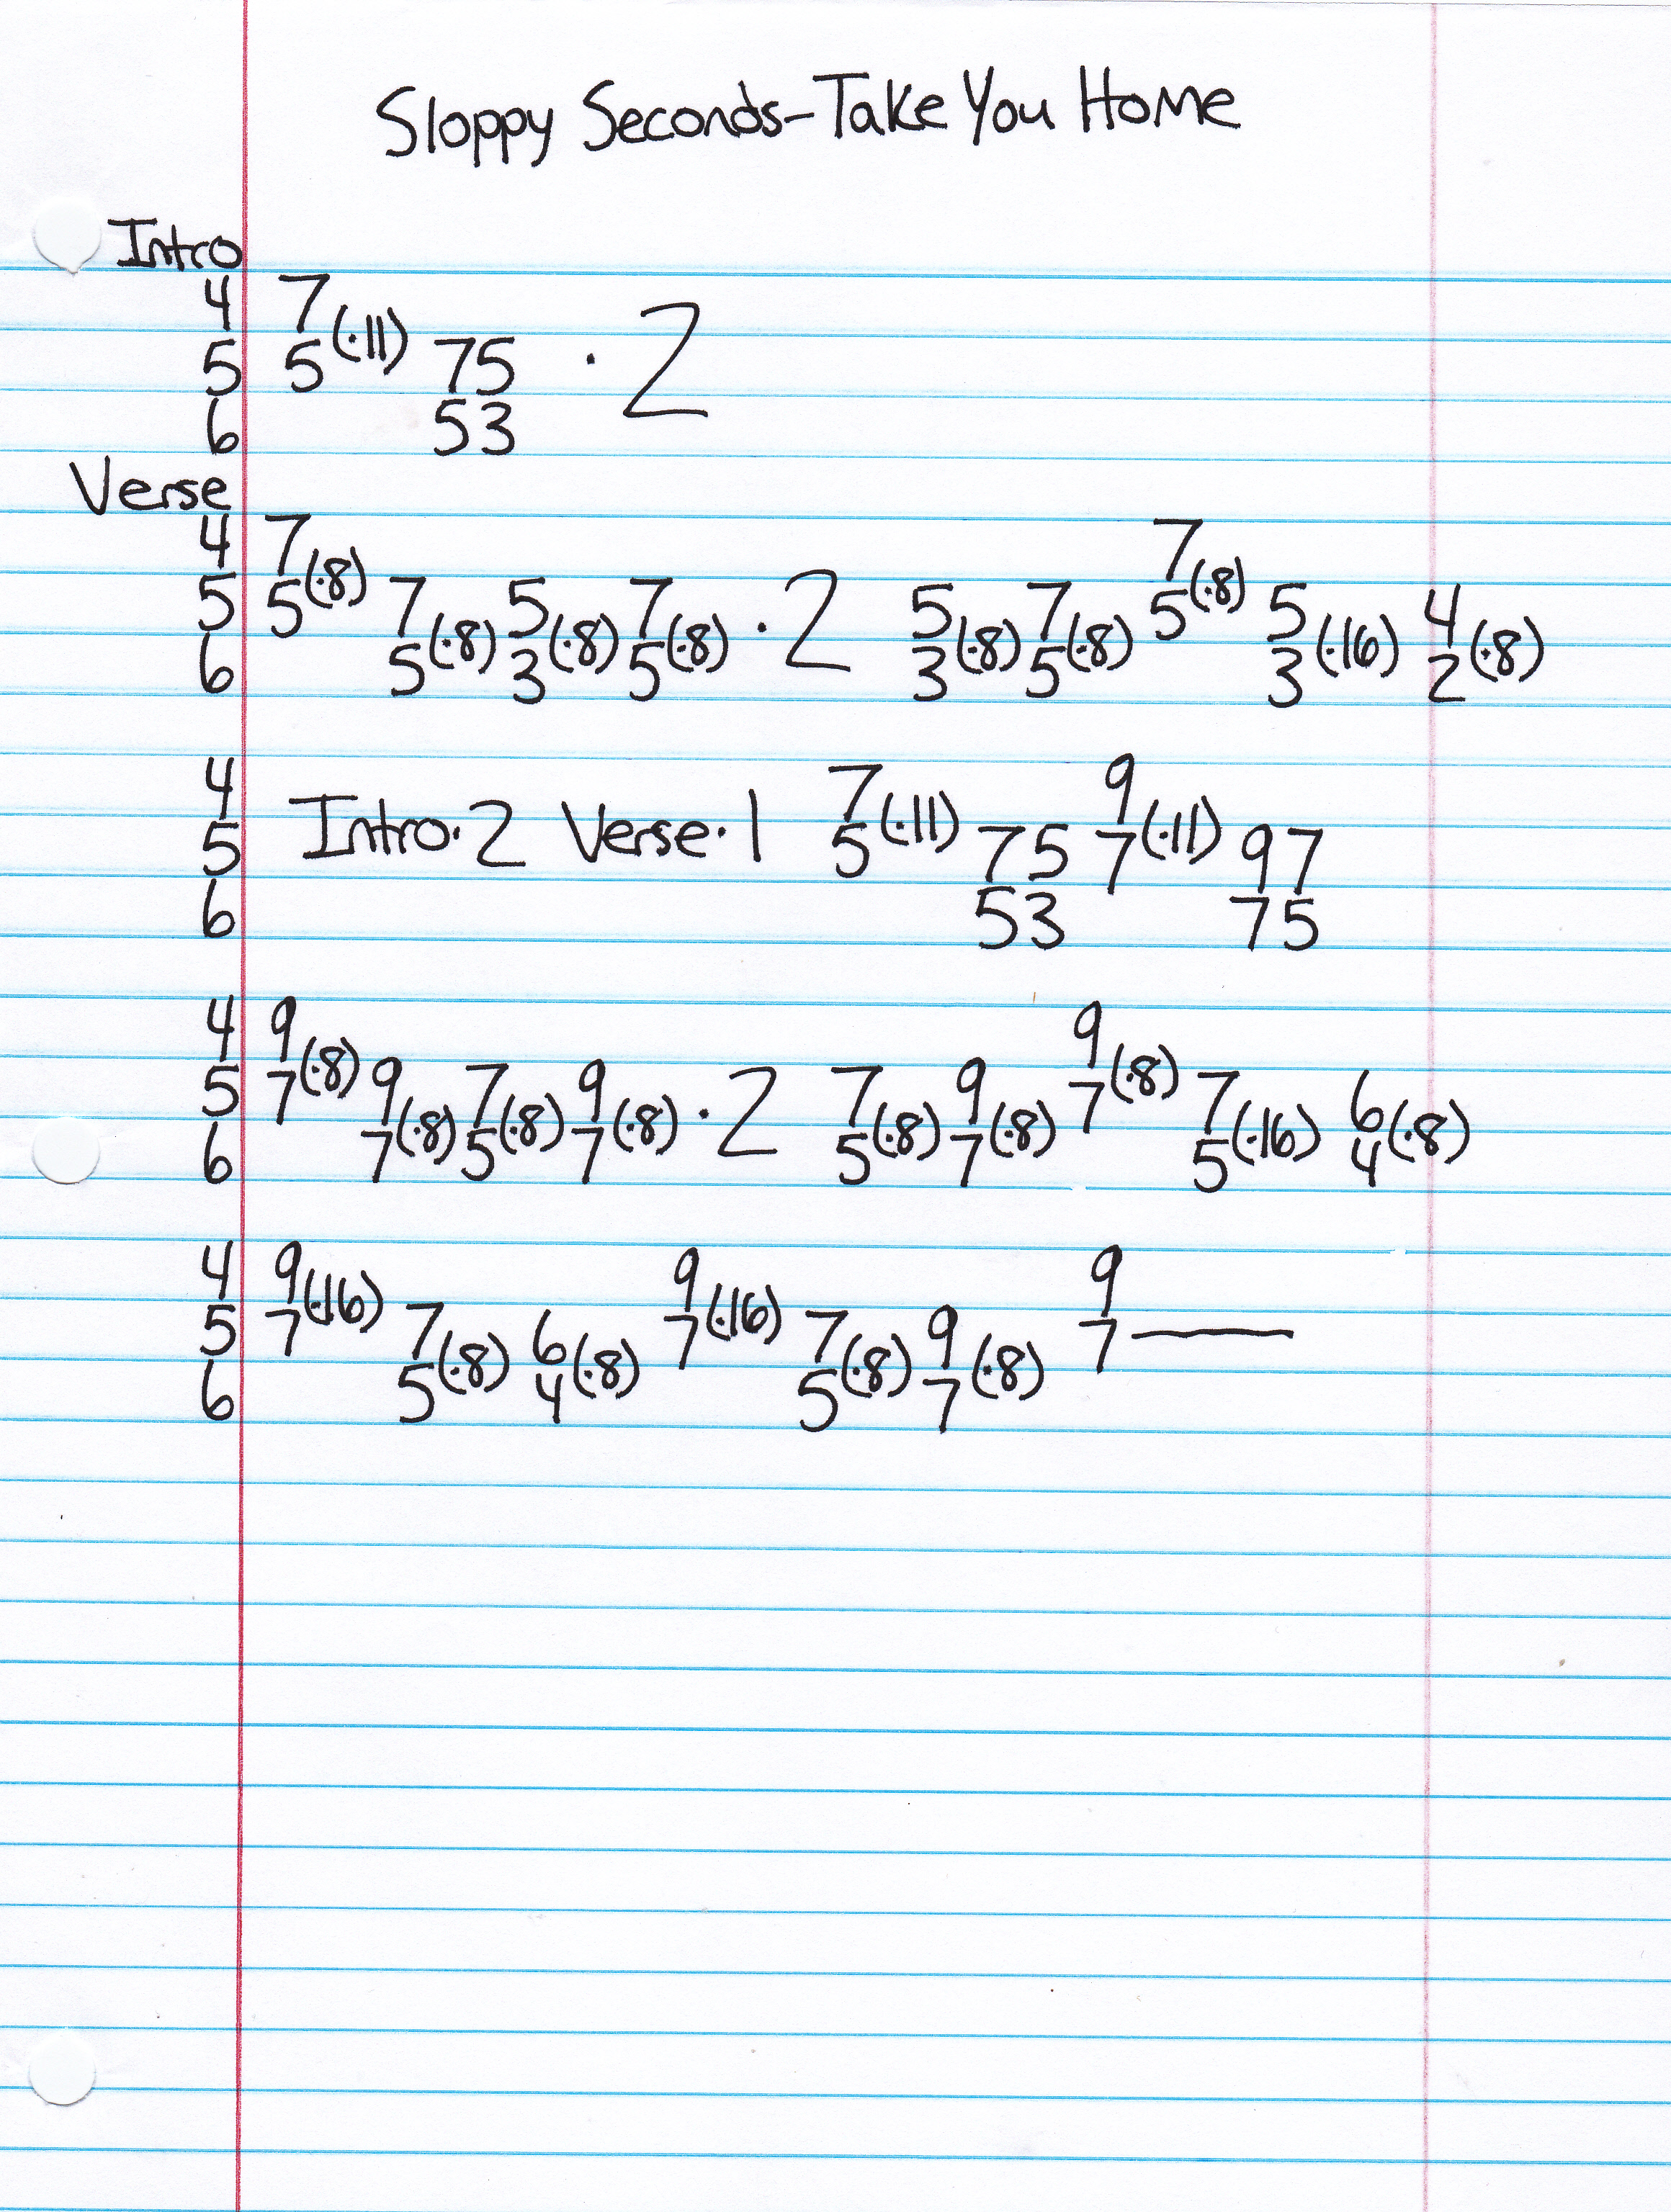 Sloppy Seconds-Take You Home
Intro
4 7
5 5(·11) 75 · 2
6 53
Verse
4 7(·8) 7(·8)
5 5 7 5 7 · 2 5 7 5 5 4
6 5(·8) 3(·8) 5(·8) 3(·8) 5(·8) 3(·16) 2(·8)
4 7 9
5 Intro·2 Verse·1 5(·11) 75 7(·11) 97
6 53 75
4 9(·8) 9(·8)
5 7 9 7 9 · 2 7 9 7 7 6
6 7(·8) 5(·8) 7(·8) 5(·8) 7(·8) 5(·16) 4(·8)
4 9(·16) 9(·16) 9
5 7 7 6 7 7 9 7—
6 5(·8) 4(·8) 5(·8) 7(·8)